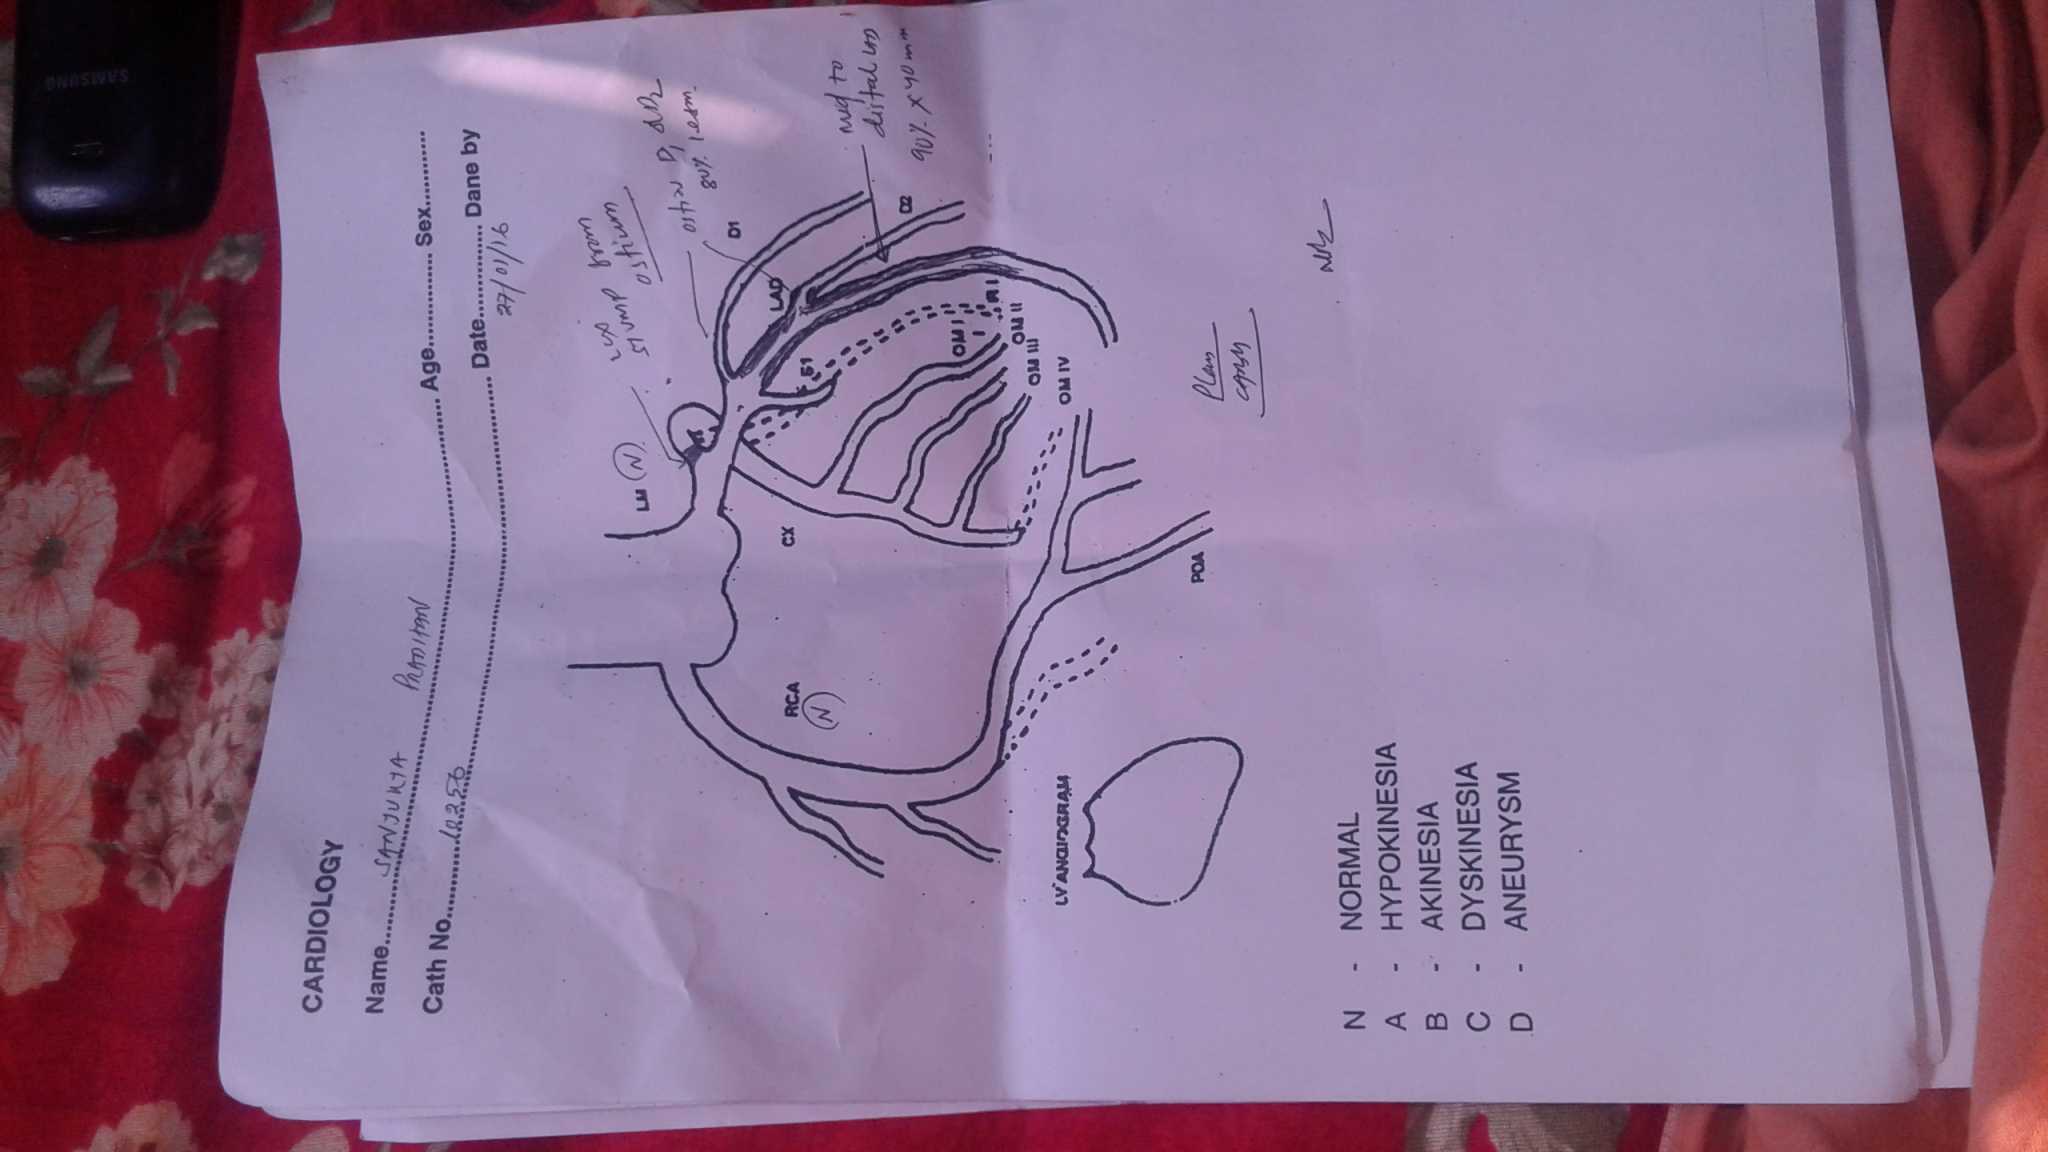 SAMSUNG
CARDIOLOGY
Name SANJUKTA PRADHAN Age Sex
Cath No. 12250 Date 27/01/16 Dane by
LM N
stump from
ostium
D1 & D2
80% lesion
mid to
distal LAD
90% x 40mm
D1
D2
LAD
S1
RI
OM I
OM II
OM III
OM IV
CX
RCA
N
PDA
LV ANGIOGRAM
Plan
N - NORMAL
A - HYPOKINESIA
B - AKINESIA
C - DYSKINESIA
D - ANEURYSM